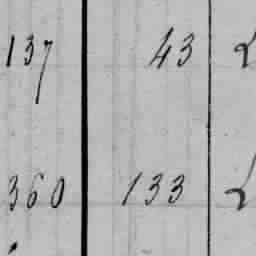 137 43
360 133